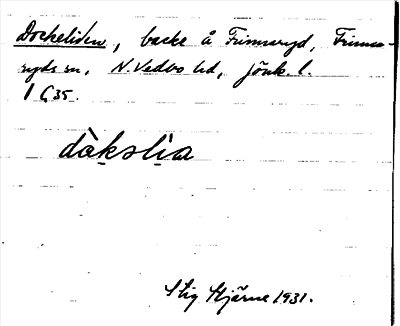 Dockeliden, backe å Frinnaryd, Frinna-
ryds sn, N. Vedbo hd, Jönk. l.
1 G 35.
dàkslìa
Stig Hjärne 1931.